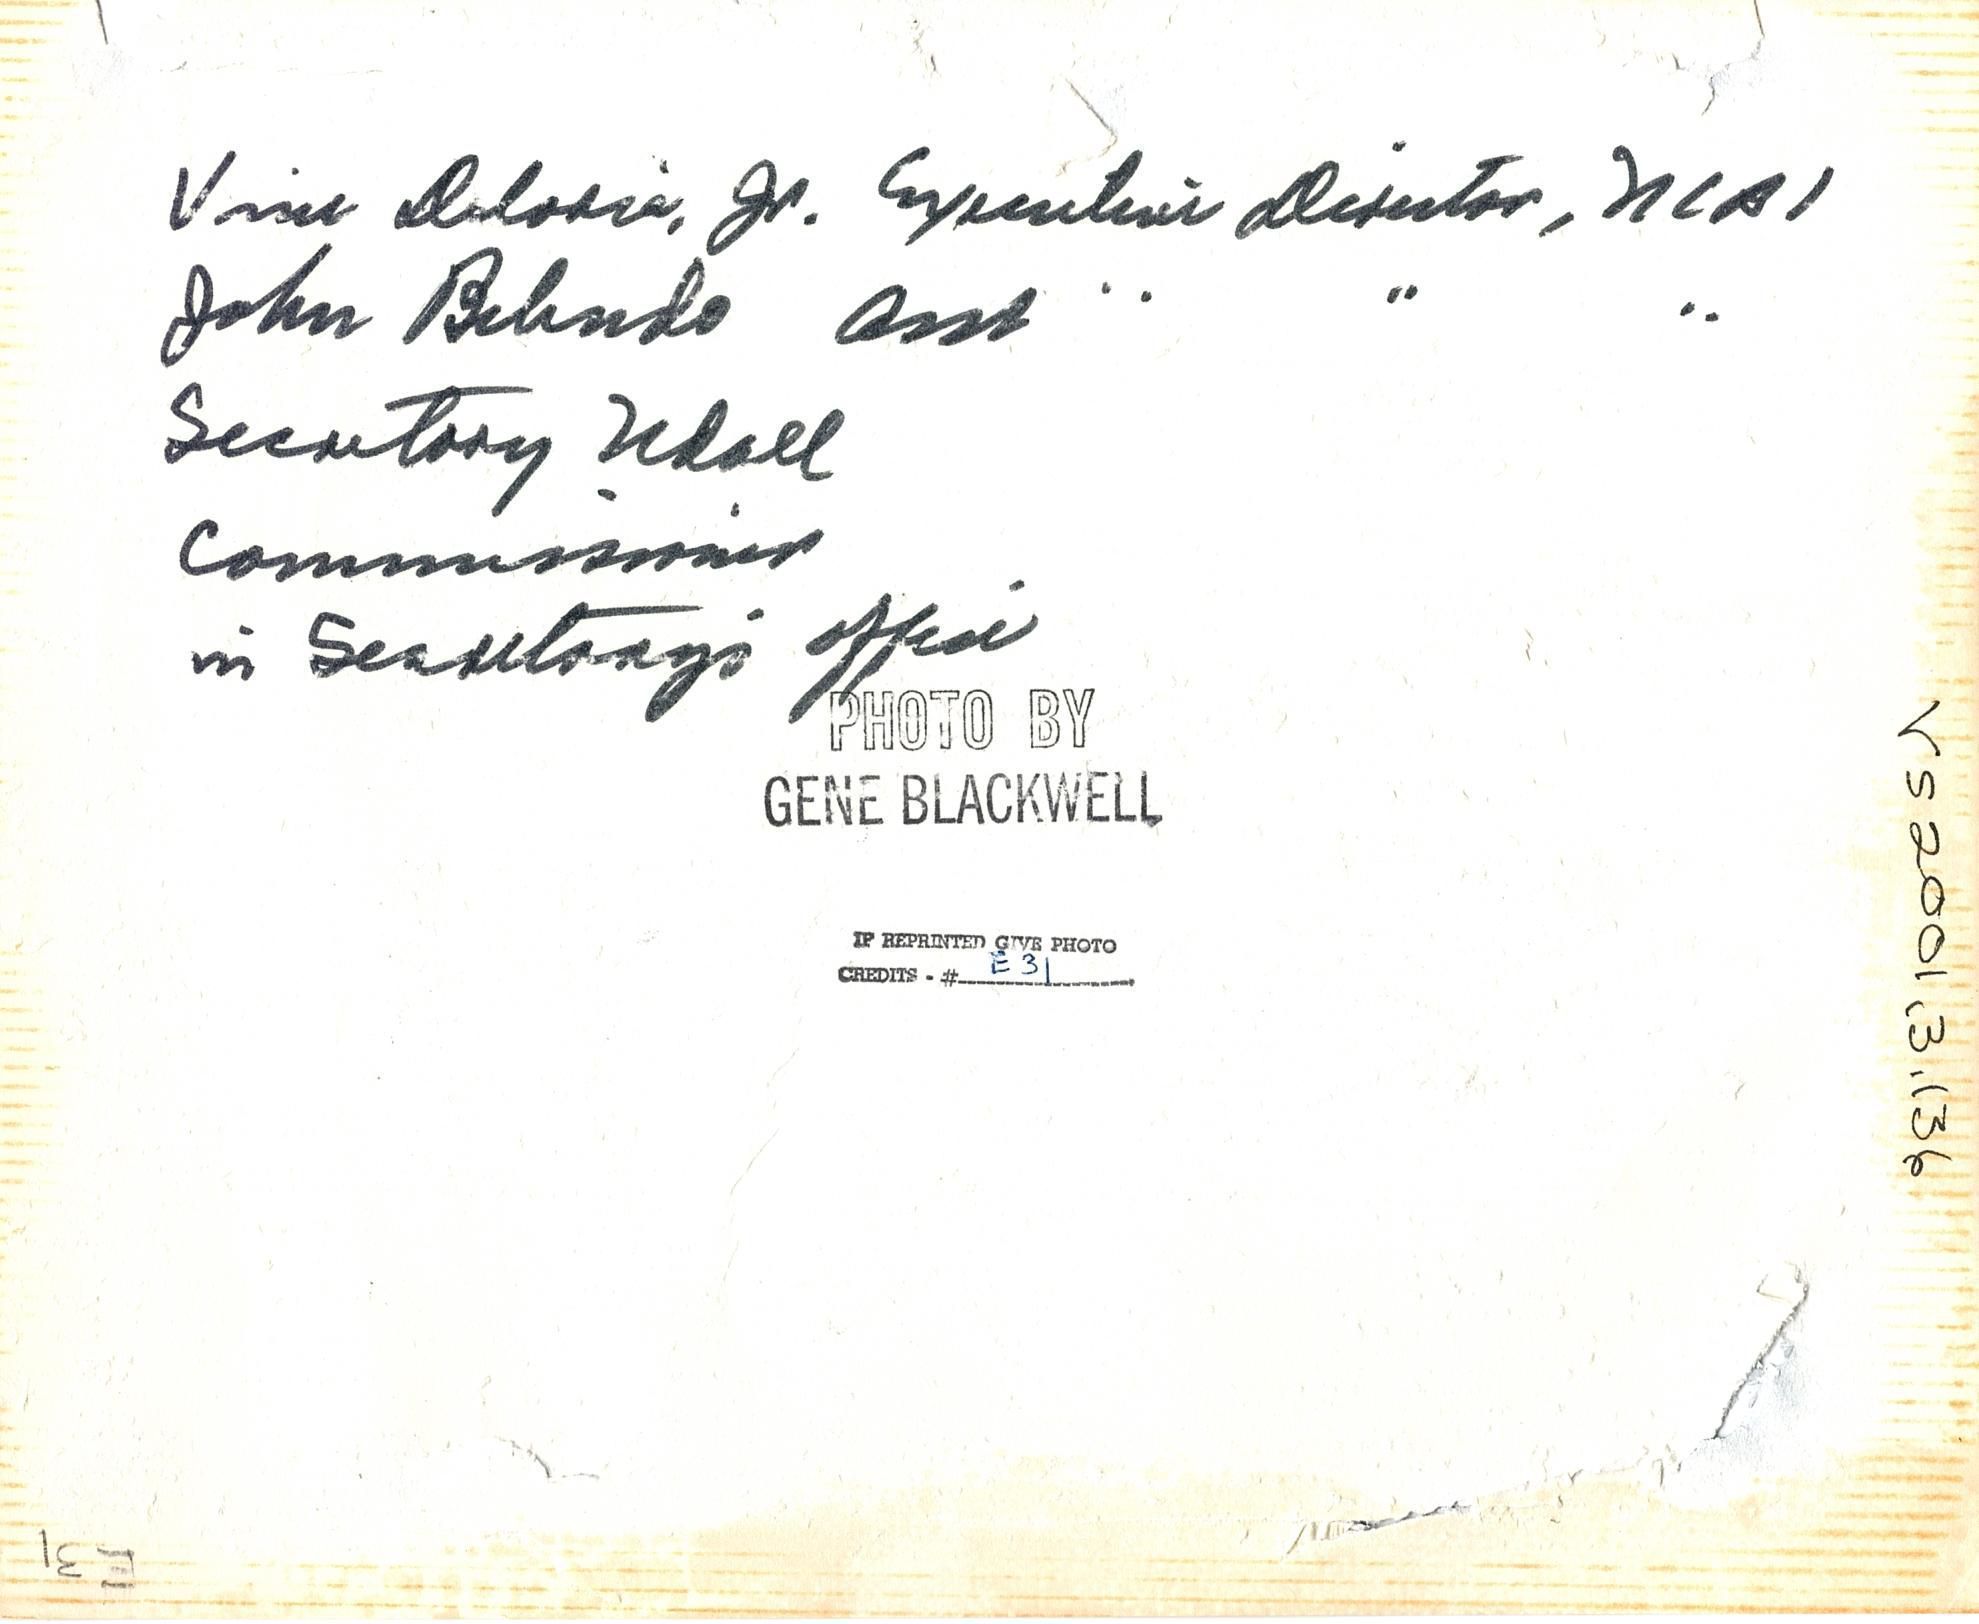 Vine Deloria, Jr. Executive Director, NCAI
John Belindo Asst " " "
Secretary Udall
Commissioner
in Secretary's office
PHOTO BY
GENE BLACKWELL
IF REPRINTED GIVE PHOTO
CREDITS - # E31
VS2001.3.136
E 31